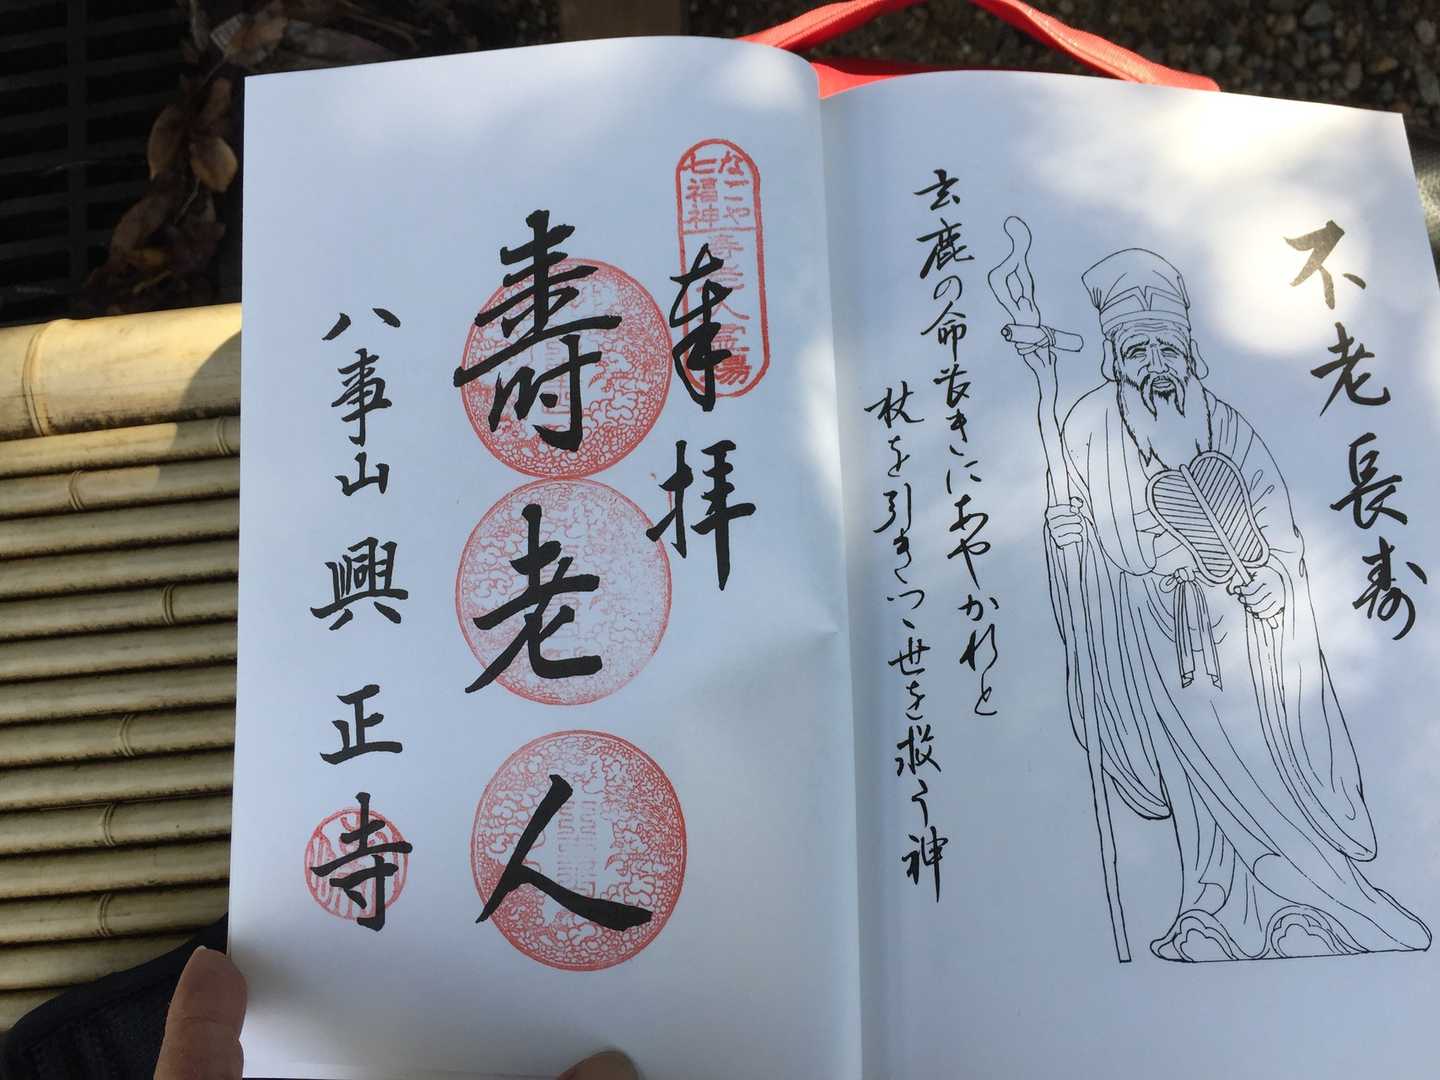 不老長寿
玄鹿の命長きにあやかれと
杖を引きつゝ世を救う神
なごや
七福神
寿老人霊場
奉拝
寿老人
八事山興正寺